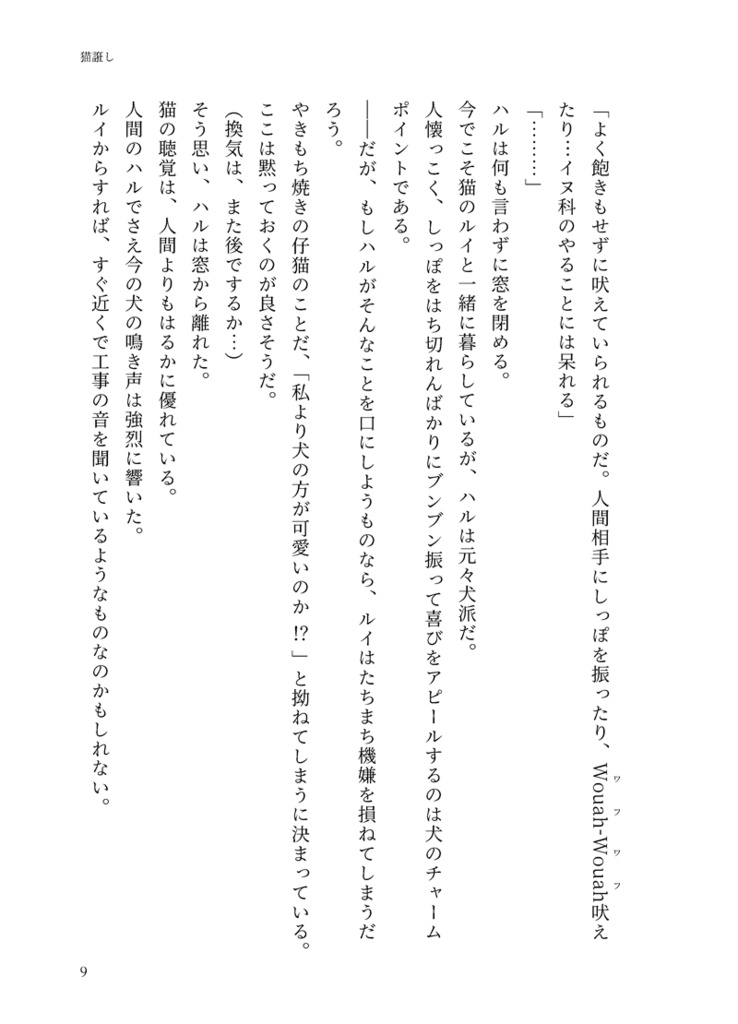 猫譲し
「よく飽きもせずに吠えていられるものだ。人間相手にしっぽを振ったり、Wouah-Wouah吠え
ワフワフ
たり…イヌ科のやることには呆れる」
「………」
ハルは何も言わずに窓を閉める。
今でこそ猫のルイと一緒に暮らしているが、ハルは元々犬派だ。
人懐っこく、しっぽをはち切れんばかりにブンブン振って喜びをアピールするのは犬のチャーム
ポイントである。
――だが、もしハルがそんなことを口にしようものなら、ルイはたちまち機嫌を損ねてしまうだ
ろう。
やきもち焼きの仔猫のことだ、「私より犬の方が可愛いのか!?」と拗ねてしまうに決まっている。
ここは黙っておくのが良さそうだ。
(換気は、また後でするか…)
そう思い、ハルは窓から離れた。
猫の聴覚は、人間よりもはるかに優れている。
人間のハルでさえ今の犬の鳴き声は強烈に響いた。
ルイからすれば、すぐ近くで工事の音を聞いているようなものなのかもしれない。
9